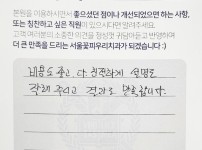 본원을 이용하시면서 좋으셨던 점이나 개선되었으면 하는 사항,
또는 칭찬하고 싶은 직원이 있으시다면 알려주세요.
고객 여러분의 소중한 의견을 정성껏 귀담아듣고 반영하여
더 큰 만족을 드리는 서울꽃피우리치과가 되겠습니다 :)
내용도 좋고 다 친절하게 설명도
잘해 주시고 결과도 만족합니다.